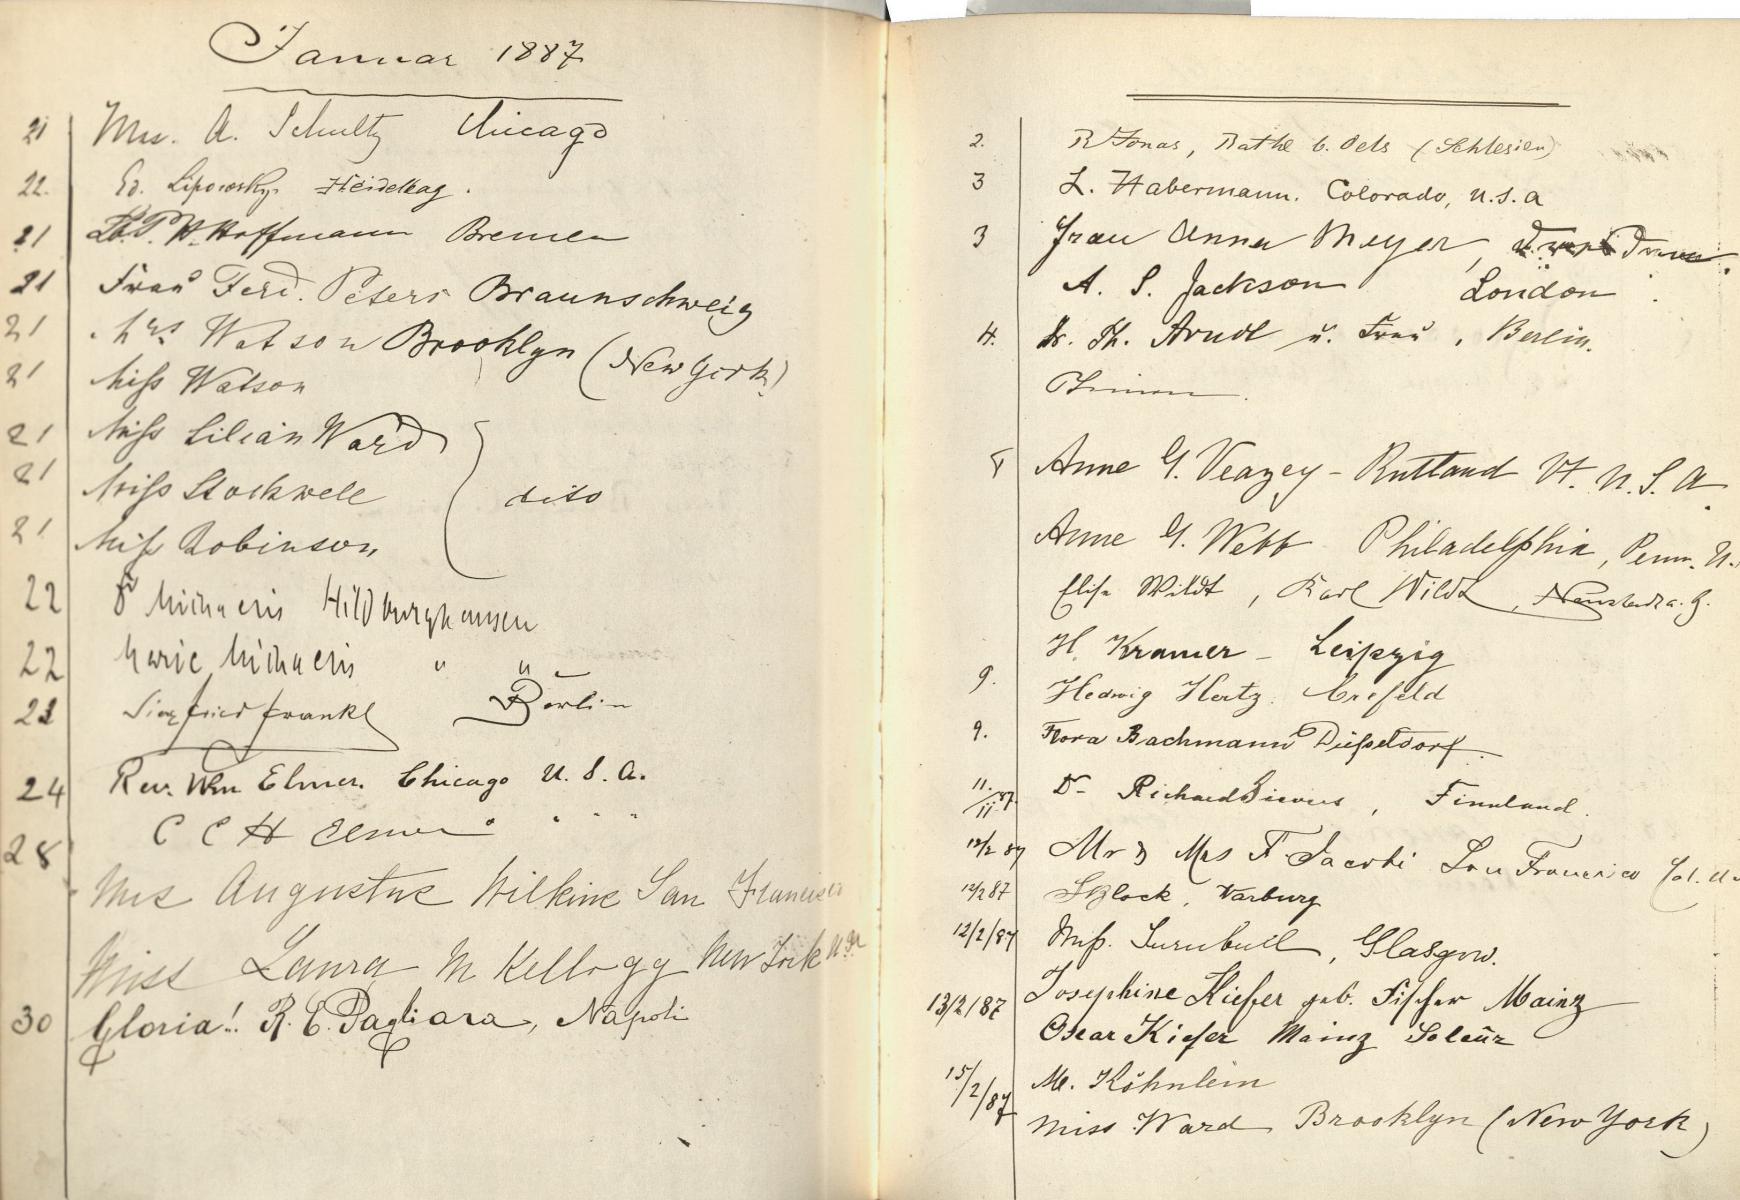 Januar 1887
21 A. Schultz Chicago
22. Ed. Lipowsky. Heidelbag.
21 H. Hoffmann Bremen
21 Frau Ferd. Peters Braunschweig
21 Mrs Watson Brooklyn (New York)
21 Miss Watson
21 Miss Lilian Ward
21 Miss Stockwell dito
21 Miss Robinson
22 Michaelis Hildburghausen
22 Marie Michaelis " "
Siegfried Frankl Berlin
24 Rev. Wm Elmer. Chicago U. S. A.
28 C C H Elmer " " " "
Mrs Augustus Wilkins San Francisco
Miss Laura M Kellogg New York
30 Gloria!! R. E. Pagliara, Napoli
2. R Jonas, Rathe b. Oels (Schlesien)
3 L. Habermann. Colorado, U.S.A
3 Frau Anna Meyer,
A. S. Jackson London
4. Dr. Th. Arndt u. Frau, Berlin.
8 Anne G. Veazey - Rutland Vt. U. S. A.
Anne G. Webb Philadelphia, Penn. U.
Elise Wildt, Karl Wildt, Neustadt a. H.
H. Kramer - Leipzig
9. Hedwig Hertz. Crefeld
9. Flora Bachmann Düsseldorf.
11./II 87. Dr Richard Sievers, Finnland.
12/2 87 Mr & Mrs F Jacobi San Francisco Cal.
12/2 87 S Block, Warburg
12/2/87 Miss. Turnbull, Glasgow.
13/2/87 Josephine Kiefer geb. Fischer Mainz
Oscar Kiefer Mainz
15/2/87 M. Köhnlein
Miss Ward Brooklyn (New York)